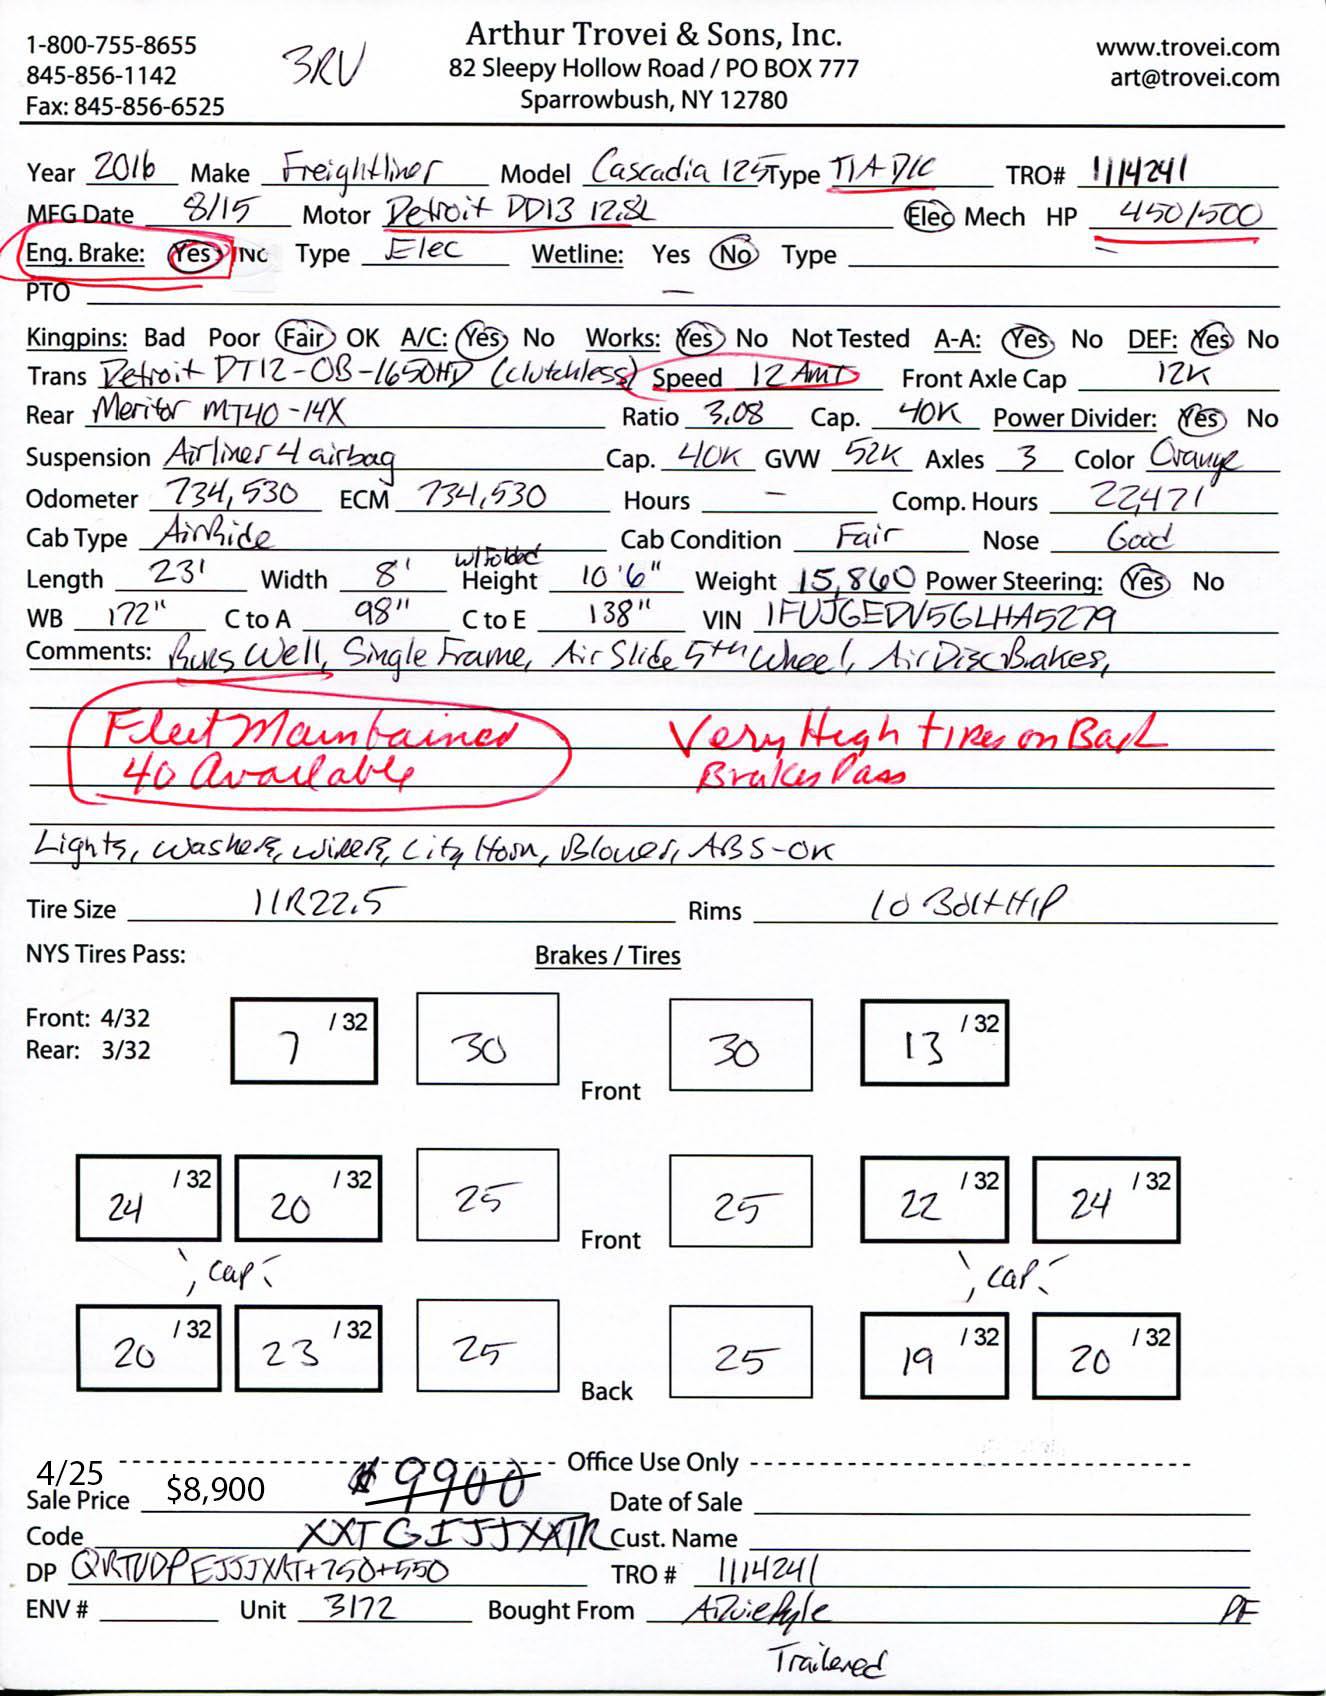 Arthur Trovei & Sons, Inc.
1-800-755-8655 www.trovei.com
845-856-1142 3RU 82 Sleepy Hollow Road / PO BOX 777 art@trovei.com
Fax: 845-856-6525 Sparrowbush, NY 12780
Year 2016 Make Freightliner Model Cascadia 125 Type T/A D/C TRO# 1114241
MFG Date 8/15 Motor Detroit DD13 12.8L Elec Mech HP 450/500
Eng. Brake: Yes No Type Elec Wetline: Yes No Type
PTO —
Kingpins: Bad Poor Fair OK A/C: Yes No Works: Yes No Not Tested A-A: Yes No DEF: Yes No
Trans Detroit DT12-OB-1650HD (Clutchless) Speed 12 AMT Front Axle Cap 12K
Rear Meritor MT40-14X Ratio 3.08 Cap. 40K Power Divider: Yes No
Suspension Airliner 4 airbag Cap. 40K GVW 52K Axles 3 Color Orange
Odometer 734,530 ECM 734,530 Hours — Comp. Hours 22,471
Cab Type AirRide Cab Condition Fair Nose Good
Length 23' Width 8' w/Folded Height 10'6" Weight 15,860 Power Steering: Yes No
WB 172" C to A 98" C to E 138" VIN 1FUJGEDV5GLHA5279
Comments: Runs Well, Single Frame, Air Slide 5th Wheel, Air Disc Bakes,
Fleet Maintained Very High Tires on Back
40 Available Brakes Pass
Lights, Washers, Wipers, City Horn, Blower, ABS-OK
Tire Size 11R22.5 Rims 10 Bolt H/P
NYS Tires Pass: Brakes / Tires
Front: 4/32 7 /32 30 30 13 /32
Rear: 3/32
Front
24 /32 20 /32 25 25 22 /32 24 /32
Front
cap cap
20 /32 23 /32 25 25 19 /32 20 /32
Back
4/25 $9900 Office Use Only
Sale Price $8,900 Date of Sale
Code XXTGIJJJXXTR Cust. Name
DP QRTUDPEJJJXRT+750+550 TRO # 1114241
ENV # Unit 3172 Bought From PF
Trailered